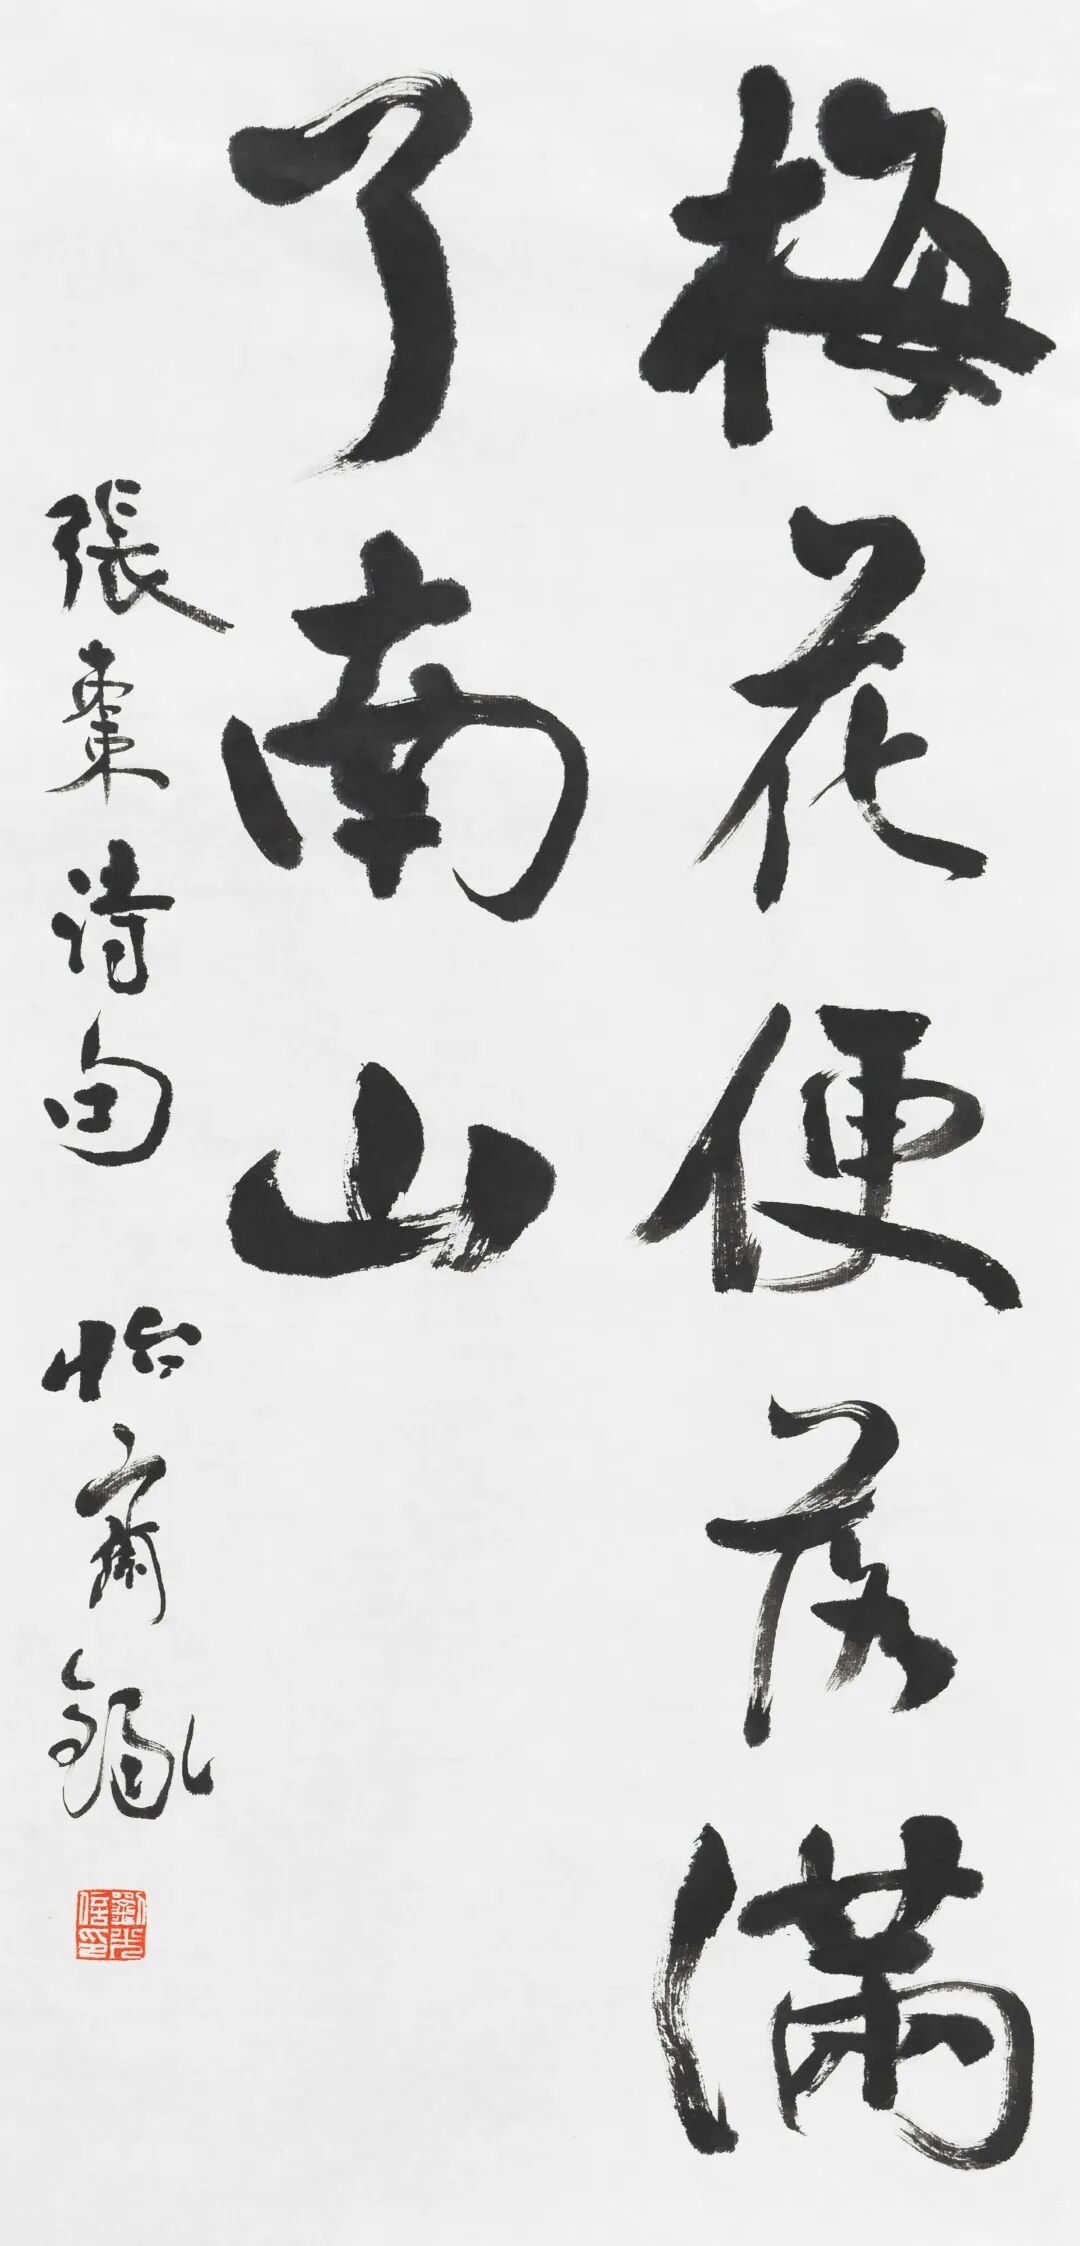 梅花便落滿
了南山
張棗詩句 怡齋